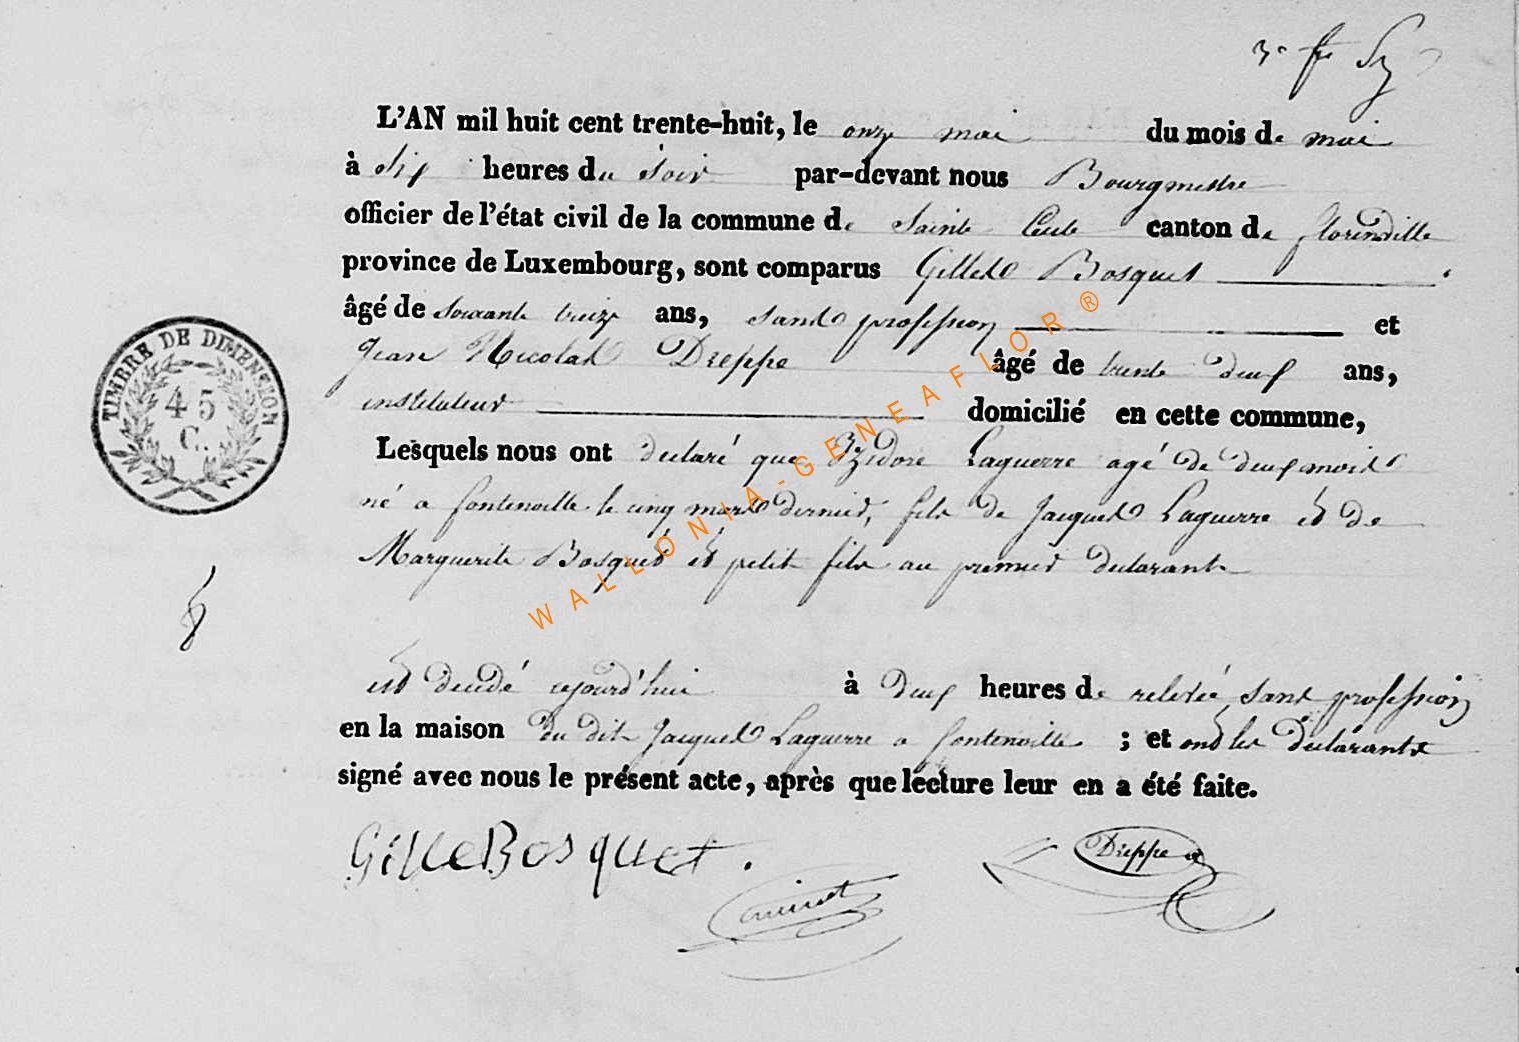 3e
L'AN mil huit cent trente-huit, le onze mai du mois de mai
à six heures du soir par-devant nous Bourgmestre
officier de l'état civil de la commune de Sainte Cecile canton de florenville
province de Luxembourg, sont comparus Gilles Bosquet
âgé de soixante treize ans, sans profession et
Jean Nicolas Dreppe âgé de trente deux ans,
instituteur domicilié en cette commune,
Lesquels nous ont declaré que Izidore Laguerre agé de deux mois
né a fontenoille le cinq mars dernier, fils de Jacques Laguerre et de
Marguerite Bosquet et petit fils au premier declarant
est decedé ajourd'hui à deux heures de relevée, sans profession
en la maison du dit Jacques Laguerre a fontenoille ; et ont les declarants
signé avec nous le présent acte, après que lecture leur en a été faite.
Gille Bosquet.
Dreppe
TIMBRE DE DIMENSION
45
C.
WALLONIA-GENEAFLOR ®